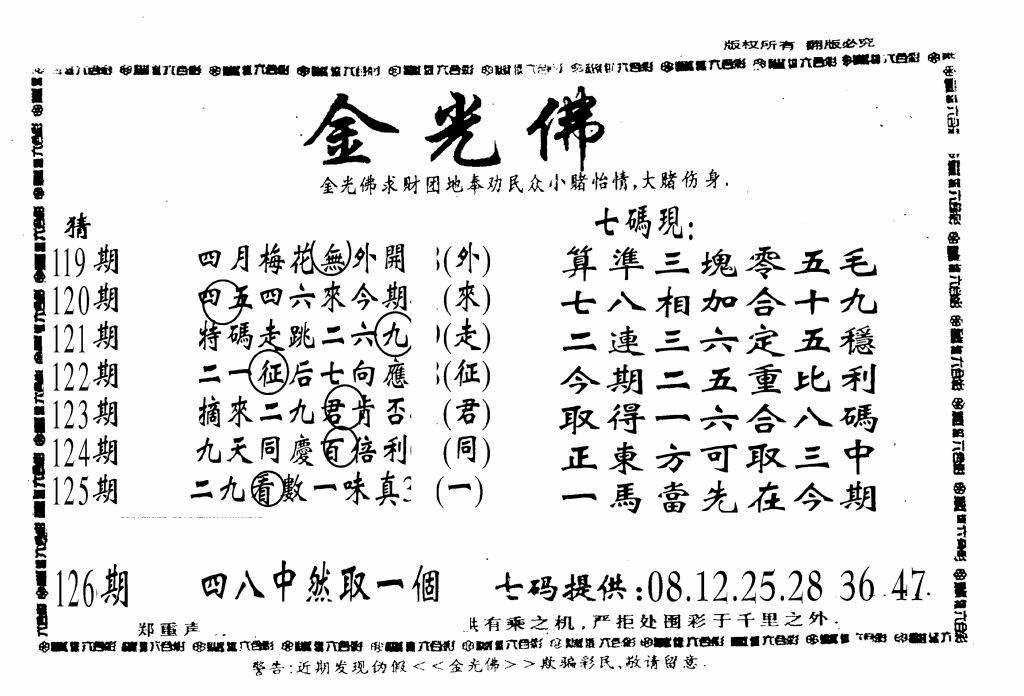 版权所有 翻版必究
金光佛
金光佛求财团地奉劝民众小赌怡情,大赌伤身.
猜 七碼現:
119期 四月梅花無外開 (外) 算準三塊零五毛
120期 四五四六來今期 (來) 七八相加合十九
121期 特碼走跳二六九 (走) 二連三六定五穩
122期 二一征后七向應 (征) 今期二五重比利
123期 摘來二九君肯否 (君) 取得一六合八碼
124期 九天同慶百倍利 (同) 正東方可取三中
125期 二九看數一味真 (一) 一馬當先在今期
126期 四八中然取一個 七码提供:08.12.25.28 36 47.
郑重声 有乘之机,严拒处围彩于千里之外.
警告:近期发现伪假<<金光佛>>欺骗彩民,敬请留意.